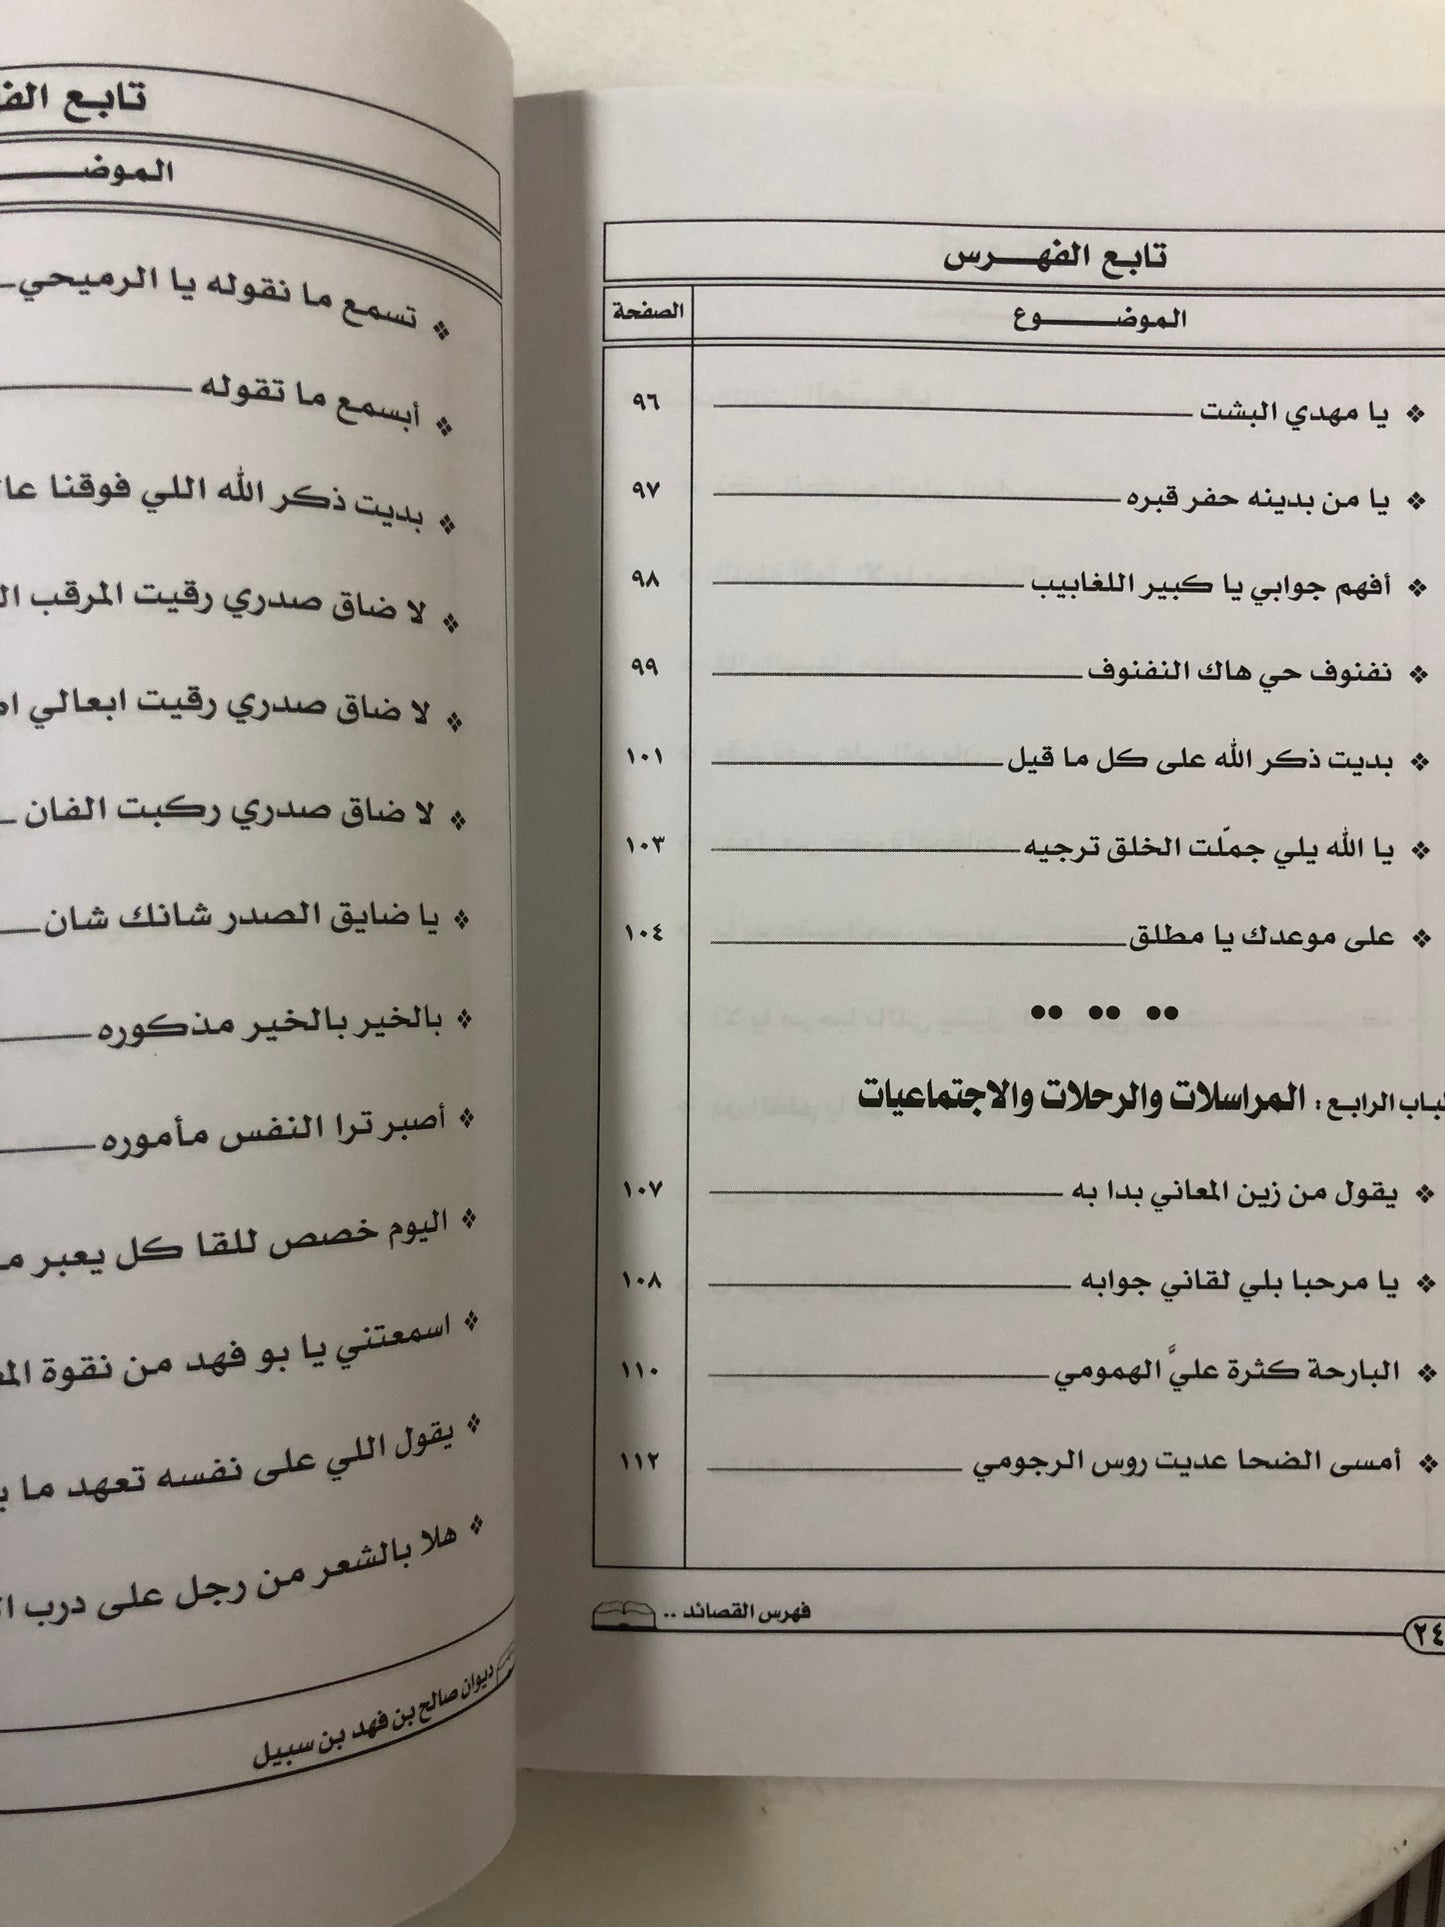 تابع الفهـــرس
الموضـــــوع الصفحة
❖ يا مهدي البشت ٩٦
❖ يا من بدينه حفر قبره ٩٧
❖ أفهم جوابي يا كبير اللغابيب ٩٨
❖ نفنوف حي هاك النفنوف ٩٩
❖ بديت ذكر الله على كل ما قيل ١٠١
❖ يا الله يلي جملّت الخلق ترجيه ١٠٣
❖ على موعدك يا مطلق ١٠٤
•• •• ••
الرابع : المراسلات والرحلات والاجتماعيات
❖ يقول من زين المعاني بدا به ١٠٧
❖ يا مرحبا بلي لقاني جوابه ١٠٨
❖ البارحة كثرة عليَّ الهمومي ١١٠
❖ أمسى الضحا عديت روس الرجومي ١١٢
فهرس القصائد ..
تابع
❖ تسمع ما نقوله يا الرميحي
❖ أبسمع ما تقوله
❖ بديت ذكر الله اللي فوقنا
❖ لا ضاق صدري رقيت المرقب
❖ لا ضاق صدري رقيت ابعالي
❖ لا ضاق صدري ركبت الفان
❖ يا ضايق الصدر شانك شان
❖ بالخير بالخير مذكوره
❖ أصبر ترا النفس مأموره
❖ اليوم خصص للقا كل يعبر
❖ اسمعتني يا بو فهد من نقوة
❖ يقول اللي على نفسه تعهد ما
❖ هلا بالشعر من رجل على درب
ديوان صالح بن فهد بن سبيل